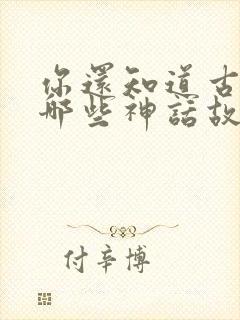 你還知道古
那些神話故
付辛博